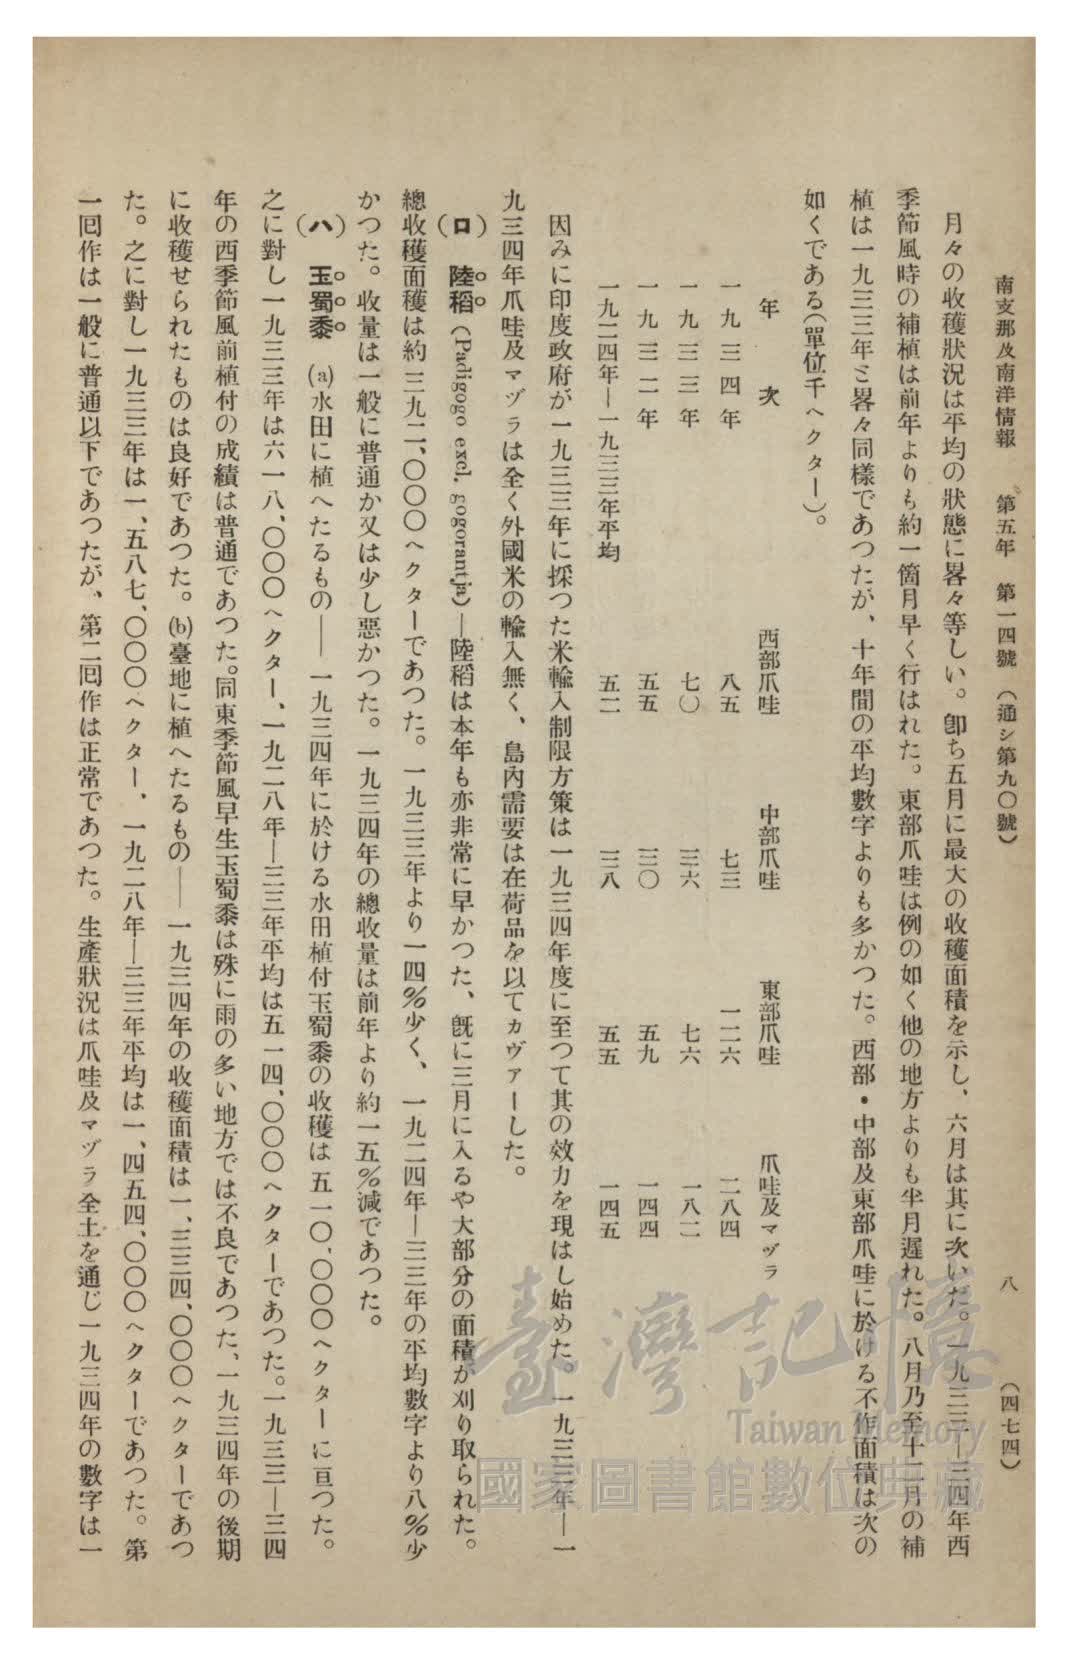 南支那及南洋情報　第五年　第一四號（通シ第九〇號）　八　（四七四）
月々の收穫狀況は平均の狀態に畧々等しい。卽ち五月に最大の收穫面積を示し、六月は其に次いだ。一九三三―三四年西
季節風時の補植は前年よりも約一箇月早く行はれた。東部爪哇は例の如く他の地方よりも半月遲れた。八月乃至十二月の補
植は一九三三年と畧々同樣であつたが、十年間の平均數字よりも多かつた。西部・中部及東部爪哇に於ける不作面積は次の
如くである（單位千ヘクター）。
年次　西部爪哇　中部爪哇　東部爪哇　爪哇及マヅラ
一九三四年　八五　七三　一二六　二八四
一九三三年　七〇　三六　七六　一八二
一九三二年　五五　三〇　五九　一四四
一九二四年―一九三三年平均　五二　三八　五五　一四五
因みに印度政府が一九三三年に採つた米輸入制限方策は一九三四年度に至つて其の效力を現はし始めた。一九三三年―一
九三四年爪哇及マヅラは全く外國米の輸入無く、島內需要は在荷品を以てカヴァーした。
（ロ）陸稻（Padigogo excl. gogorantja）―陸稻は本年も亦非常に早かつた、旣に三月に入るや大部分の面積が刈り取られた。
總收穫面穫は約三九二、〇〇〇ヘクターであつた。一九三三年より一四％少く、一九二四年―三三年の平均數字より八％少
かつた。收量は一般に普通か又は少し惡かつた。一九三四年の總收量は前年より約一五％減であつた。
（ハ）玉蜀黍　(a)水田に植へたるもの――一九三四年に於ける水田植付玉蜀黍の收穫は五一〇、〇〇〇ヘクターに亘つた。
之に對し一九三三年は六一八、〇〇〇ヘクター、一九二八年―三三年平均は五一四、〇〇〇ヘクターであつた。一九三三―三四
年の西季節風前植付の成績は普通であつた。同東季節風早生玉蜀黍は殊に雨の多い地方では不良であつた、一九三四年の後期
に收穫せられたものは良好であつた。(b)臺地に植へたるもの――一九三四年の收穫面積は一、三三四、〇〇〇ヘクターであつ
た。之に對し一九三三年は一、五八七、〇〇〇ヘクター、一九二八年―三三年平均は一、四五四、〇〇〇ヘクターであつた。第
一囘作は一般に普通以下であつたが、第二囘作は正常であつた。生產狀況は爪哇及マヅラ全土を通じ一九三四年の數字は一
臺灣記憶
Taiwan Memory
國家圖書館數位典藏